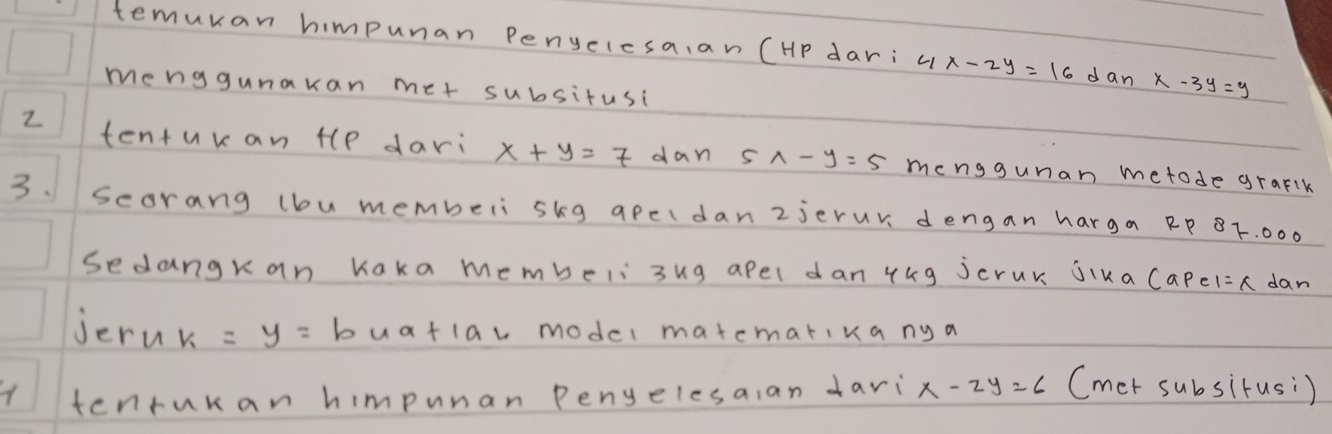 temukan himpunan Penyelesaian (HP dari 4x-2y=16 dan x-3y=9
menggunakan met subsitusi
2 tentukan HP dari x+y=7 dan 5x-y=5 menggunan metode grafik
3. seorang ibu membeli 5kg apel dan 2jeruk dengan harga RP 87.000
sedangkan kaka membeli 3kg apel dan 4kg jeruk jika (apel=x dan
jeruk = y = buatlah model matematika nya
4 tentukan himpunan Penyelesaian dari x-2y=6 (met subsitusi)